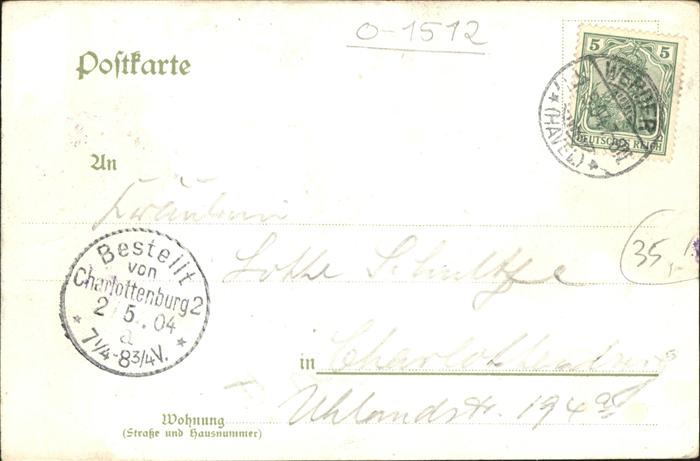 O-1512
Postkarte
5 5
DEUTSCHES REICH
WERDER
(HAVEL)
An
Fräulein
Lotte Schultze
Bestellt
von
Charlottenburg 2
2.5.04
a
7 1/4-8 3/4 V.
35,-
in Charlottenburg
Uhlandstr. 194a
Wohnung
(Straße und Hausnummer)